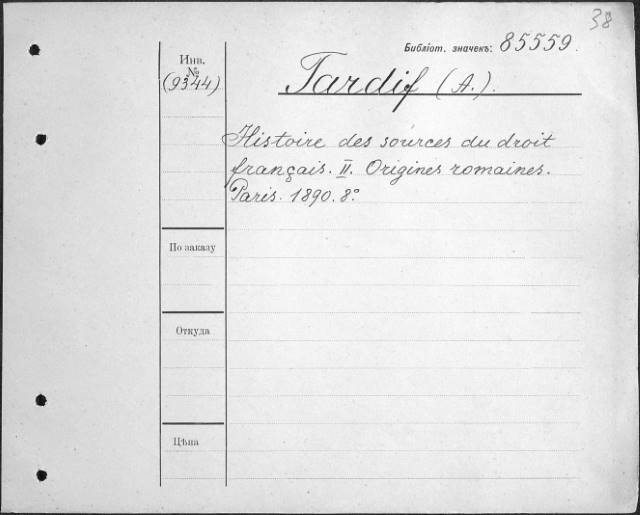 38
Библіот. значекъ: 85559.
Инв.
№
(9344)
Tardif (A.).
Histoire des sources du droit
français. II. Origines romaines.
Paris. 1890. 8º
По заказу
Откуда
Цѣна